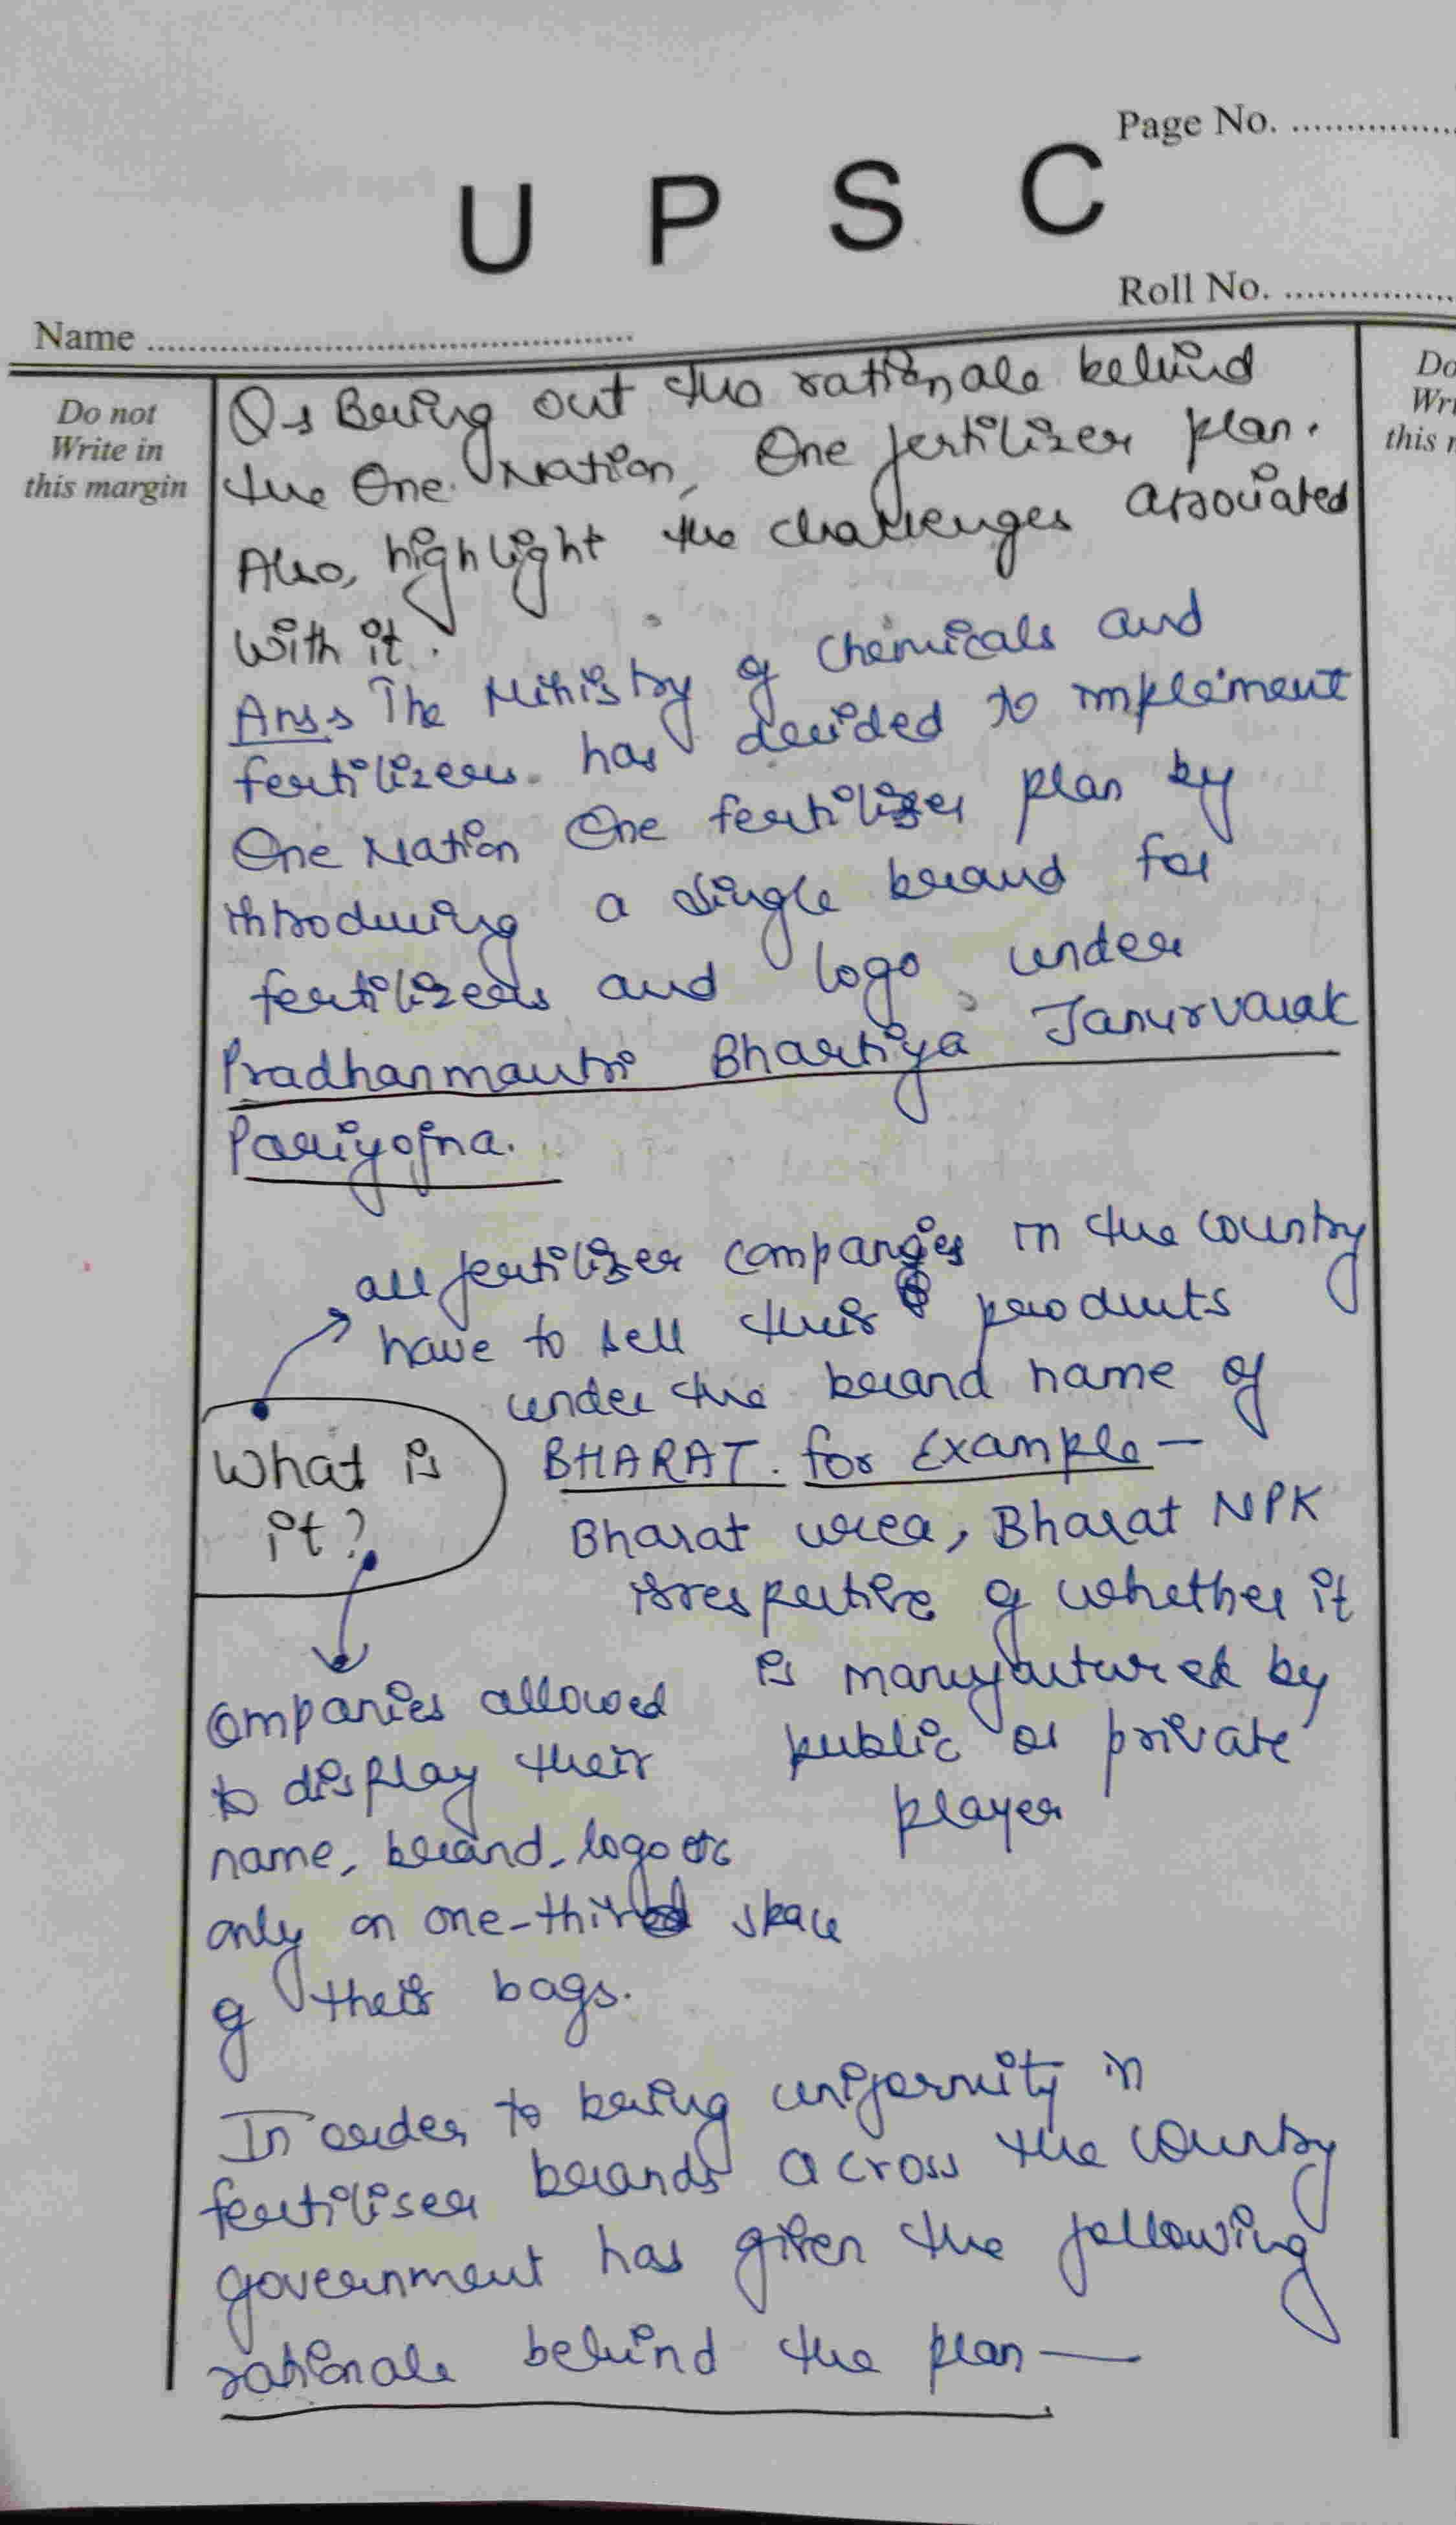 Page No. ................
U P S C
Roll No. ................
Name ................................................
Do not
Write in
this margin
Do
Wri
this
Q→ Bring out the rationale behind
the One Nation, One fertilizer plan.
Also, highlight the challenges associated
with it.
Ans→ The Ministry of Chemicals and
fertilizers has decided to implement
One Nation One fertilizer plan by
introducing a single brand for
fertilizers and logo under
Pradhanmantri Bhartiya Janurvarak
Pariyojna.
What is
it?
all fertilizer companies in the country
have to sell their products
under the brand name of
BHARAT. for Example —
Bharat urea, Bharat NPK
irrespective of whether it
is manufactured by
public or private
player
Companies allowed
to display their
name, brand, logo etc
only on one-third space
of their bags.
In order to bring uniformity in
fertiliser brands across the country
government has given the following
rationale behind the plan —